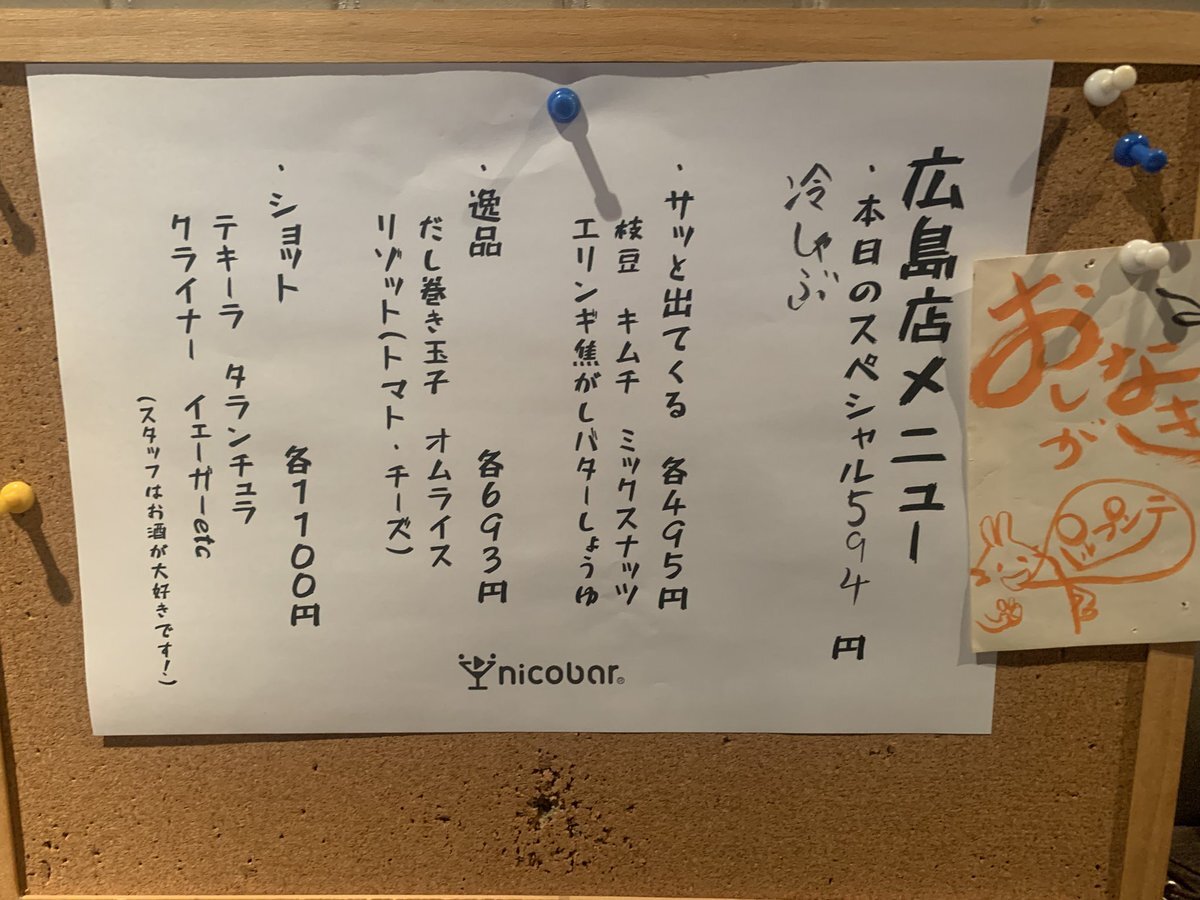 広島店メニュー
・本日のスペシャル594円
冷しゃぶ
・サッと出てくる 各495円
枝豆 キムチ ミックスナッツ
エリンギ焦がしバターしょうゆ
・逸品 各693円
だし巻き玉子 オムライス
リゾット(トマト・チーズ)
・ショット 各1100円
テキーラ タランチュラ
クライナー イエーガーetc
(スタッフはお酒が大好きです!)
nicobar®